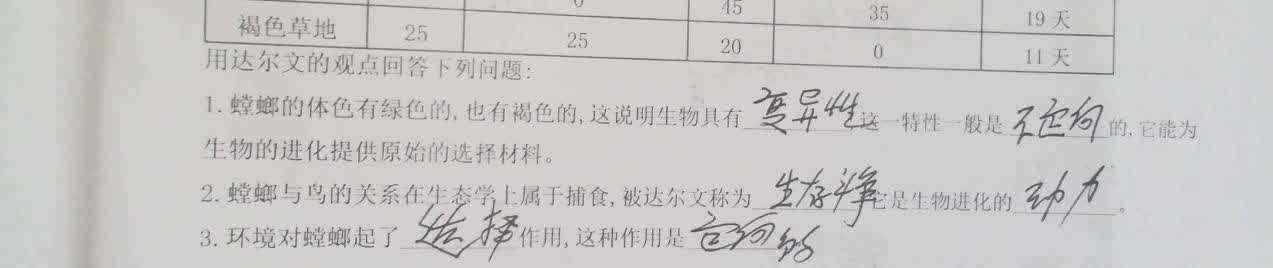 0 45 35 19天
褐色草地 25 25 20 0 11天
用达尔文的观点回答下列问题:
1. 螳螂的体色有绿色的,也有褐色的,这说明生物具有 变异性 这一特性一般是 不定向 的,它能为
生物的进化提供原始的选择材料。
2. 螳螂与鸟的关系在生态学上属于捕食,被达尔文称为 生存斗争 它是生物进化的 动力 。
3. 环境对螳螂起了 选择 作用,这种作用是 定向的